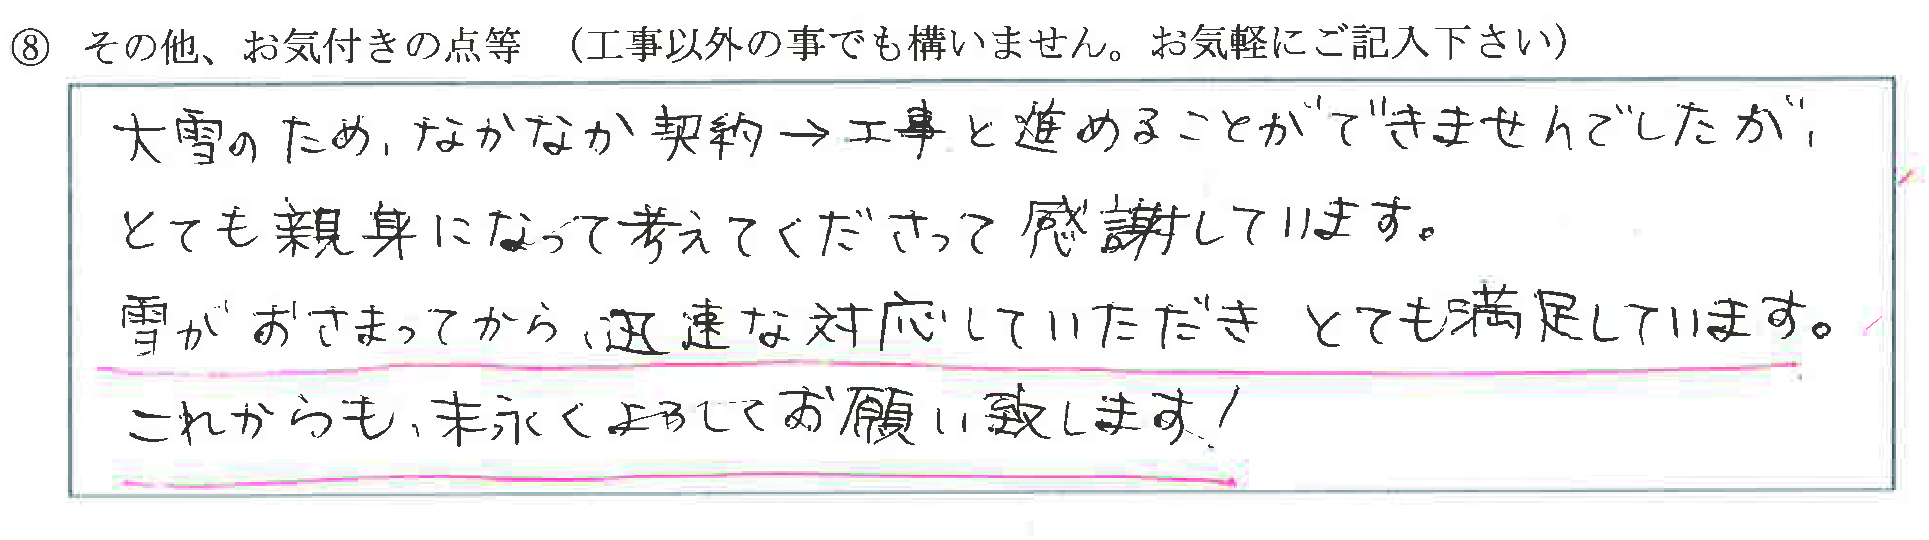 ⑧ その他、お気付きの点等 （工事以外の事でも構いません。お気軽にご記入下さい）
大雪のため、なかなか契約→工事と進めることができませんでしたが、
とても親身になって考えてくださって感謝しています。
雪がおさまってから、迅速な対応していただき とても満足しています。
これからも、末永くよろしくお願い致します!